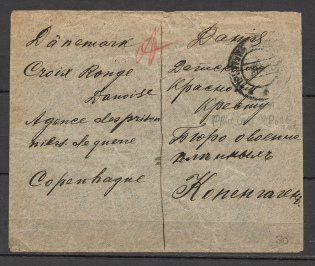 Dänemark
Croix Rouge
Danoise
Agence des prison
niers de guerre
Copenhague
Данiя
Датскому
Красному
Кресту
Бюро о военно
плѣнныхъ
Копенгагенъ
30